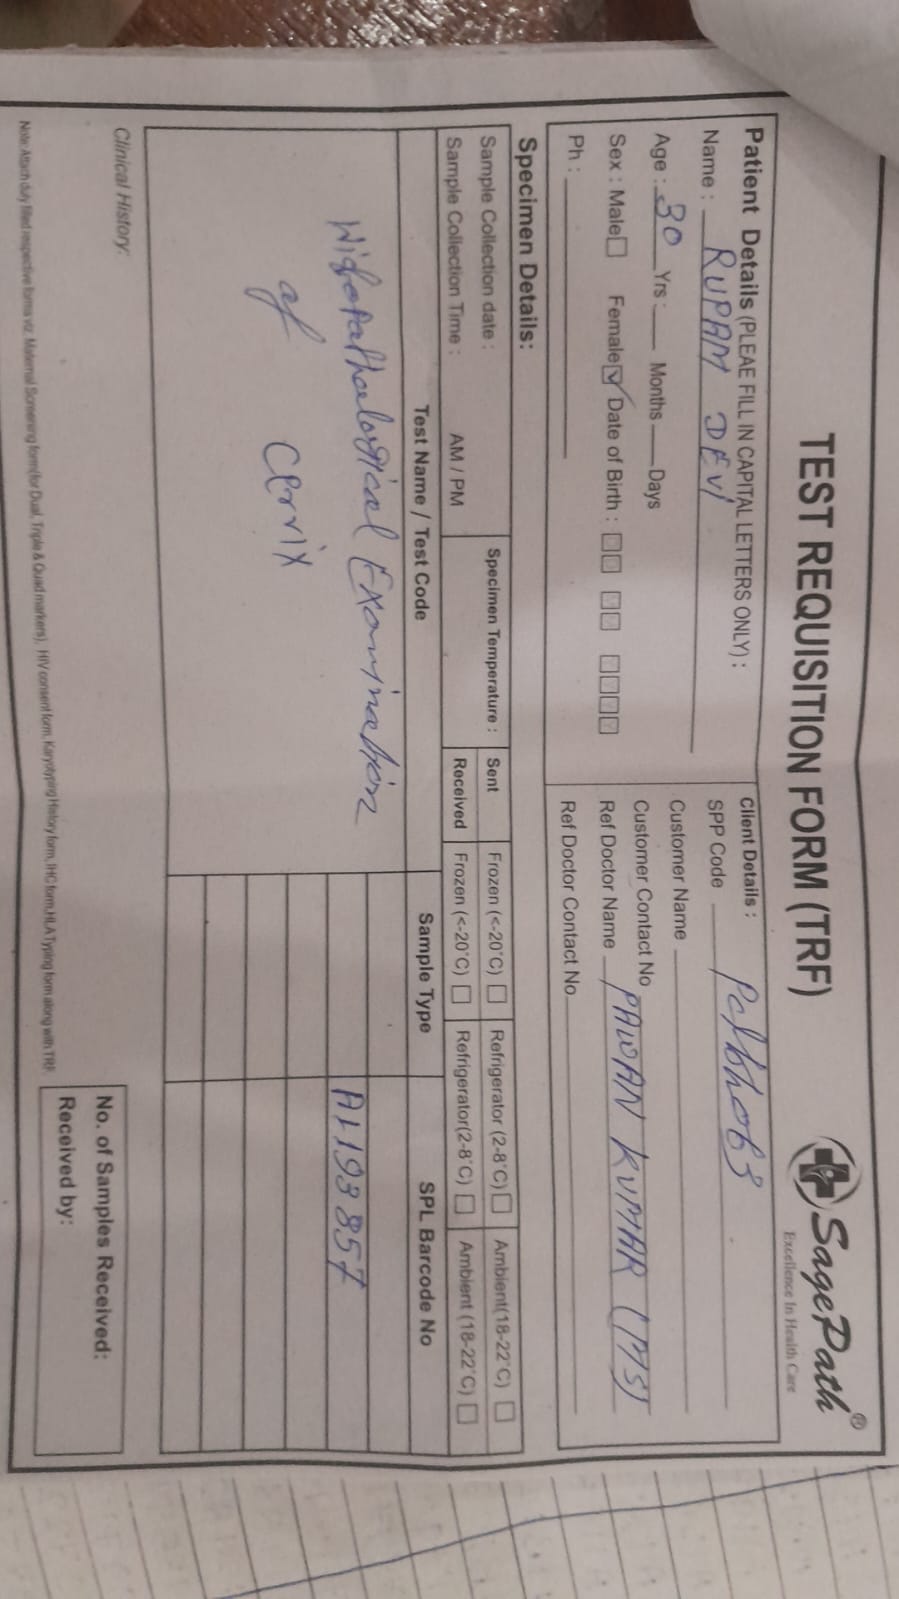 TEST REQUISITION FORM (TRF)
SagePath®
Excellence In Health Care
Patient Details (PLEAE FILL IN CAPITAL LETTERS ONLY) :
Name : RUPAM DEVI
Age : 30 Yrs : Months Days
Sex : Male Female Date of Birth :
Ph :
Client Details :
SPP Code
Customer Name
Customer Contact No
Ref Doctor Name PAWAN KUMAR (MS)
Ref Doctor Contact No
Specimen Details:
Sample Collection date :
Sample Collection Time : AM / PM
Specimen Temperature :
Sent Frozen (<-20°C) Refrigerator (2-8°C) Ambient(18-22°C)
Received Frozen (<-20°C) Refrigerator(2-8°C) Ambient (18-22°C)
Test Name / Test Code Sample Type SPL Barcode No
Examination A1193857
of
Clinical History:
No. of Samples Received:
Received by:
Note: Attach duly filled respective forms viz. Maternal Screening form (for Dual, Triple & Quad markers), HIV consent form, Karyotyping History form, IHC form, HLA Typing form along with TRF.